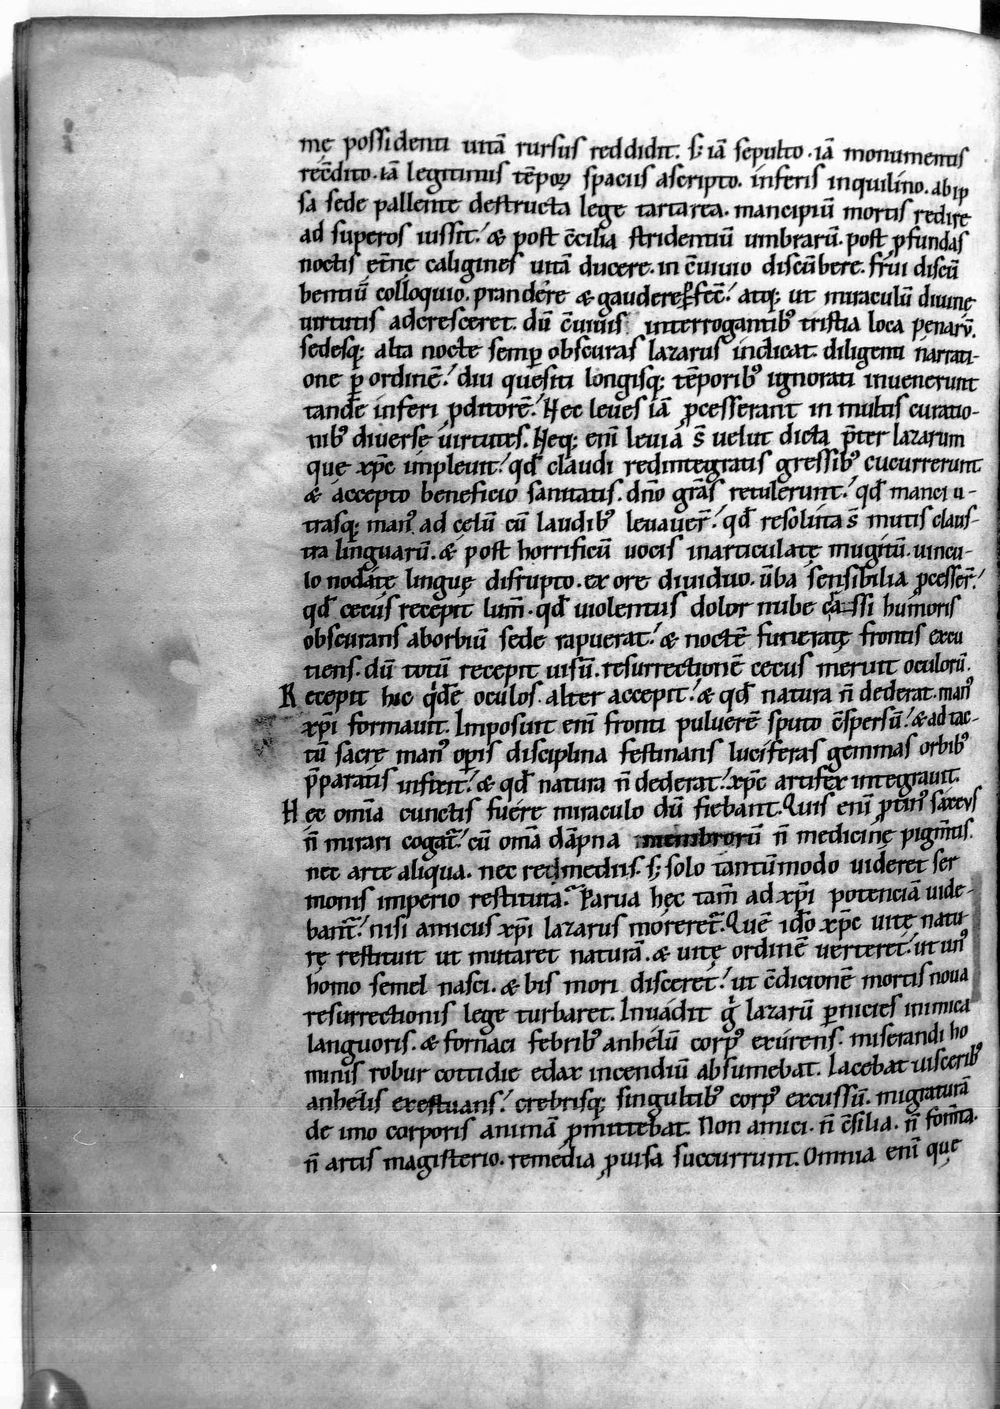 mę possidenti uitā rursus reddidit. s; iā sepulto. iā monumentis
recdito. iā legitimis tēpoꝝ spaciis ascripto. inferis inquilino. ab ip
sa sede pallente destructa lege tartarea. mancipiū mortis redire
ad superos iussit. & post c̄cilia stridentiū umbrarū. post ꝓfundas
noctis et̄nę caligines uitā ducere. in c̄uiuio discūbere. frui discū
bentiū colloquio. prandere & gaudere fec̄. atq; ut miraculū diuinę
uirtutis adcresceret. dū c̄uiuis interrogantib⁹ tristia loca penarū.
sedesq; alta nocte semꝑ obscuras lazarus indicat. diligenti narrati-
one ꝑ ordinē. diu quesiti longisq; tēporib⁹ ignorati inuenerunt
tandē inferi ꝓditorē. Hec leues iā ꝓcesserant in multis curatio-
nib⁹ diuersę uirtutes. Neq; eni leuia s̄ uelut dicta p̄ter lazarum
que xp̄c impleuit. qd̄ claudi redintegratis gressib⁹ cucurrerunt.
& accepto beneficio sanitatis. dn̄o gr̄as retulerunt. qd̄ manci u-
trasq; man⁹ ad celū cū laudib⁹ leuauer̄. qd̄ resoluta s̄ mutis claus-
tra linguarū. & post horrificū uocis inarticulatę mugitū. uincu-
lo nodatę linguę disrupto. ex ore diuiduo. ūba sensibilia ꝓcesser̄.
qd̄ cecus recepit lum̄. qd̄ uiolentus dolor nube crassi humoris
obscurans ab orbiū sede rapuerat. & noctē funeratę frontis excu
tiens. dū totū recepit uisū. resurrectionē cecus meruit oculorū.
Recepit hic qidē oculos. alter accepit. & qd̄ natura n̄ dederat. man⁹
xp̄i formauit. Imposuit eni fronti puluerē sputo c̄spersū. & ad tac-
tū sacrę man⁹ opis disciplina festinans luciferas gemmas orbib⁹
p̄paratis inserit. & qd̄ natura n̄ dederat. xp̄c artifex integrauit.
Hec omīa cunctis fuere miraculo dū fiebant. Quis eni ꝓtin⁹ saxeus
n̄ mirari cogat̄. cū omīa dāpna membrorū n̄ medicinę pigm̄tis.
nec arte aliqua. nec remediis. s; solo tantūmodo uideret ser
monis imperio restituta. Parua hęc tam̄ ad xp̄i potenciā uide-
bant̄. nisi amicus xp̄i lazarus moreret̄. Quē ido xp̄c uitę natu
rę restituit ut mutaret naturā. & uitę ordinē uerteret. ut un⁹
homo semel nasci. & bis mori disceret. ut c̄dicionē mortis noua
resurrectionis lege turbaret. Inuadit g̊ lazarū ꝑnicies inimica
languoris. & fornaci febrib⁹ anhelū corp⁹ exurens. miserandi ho
minis robur cottidie edax incendiū absumebat. Iacebat uiscerib⁹
anhelis exestuans. crebrisq; singultib⁹ corp⁹ excussū. migraturā
de imo corporis animā ꝓmittebat. Non amici. n̄ c̄silia. n̄ fom̄ta.
n̄ artis magisterio. remedia ꝓuisa succurrunt. Omnia eni que